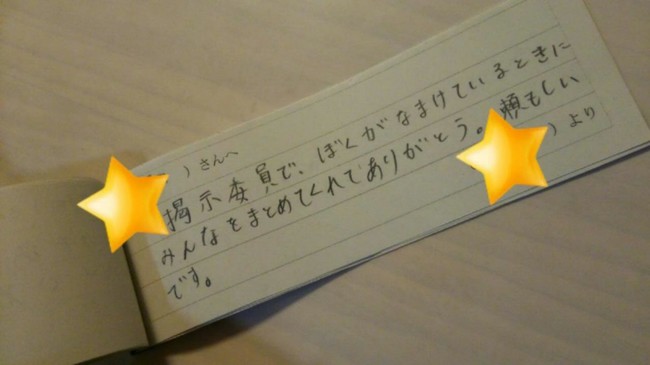 )さんへ
掲示委員で、ぼくがなまけているときに
みんなをまとめてくれてありがとう。頼もしい
です。
)より